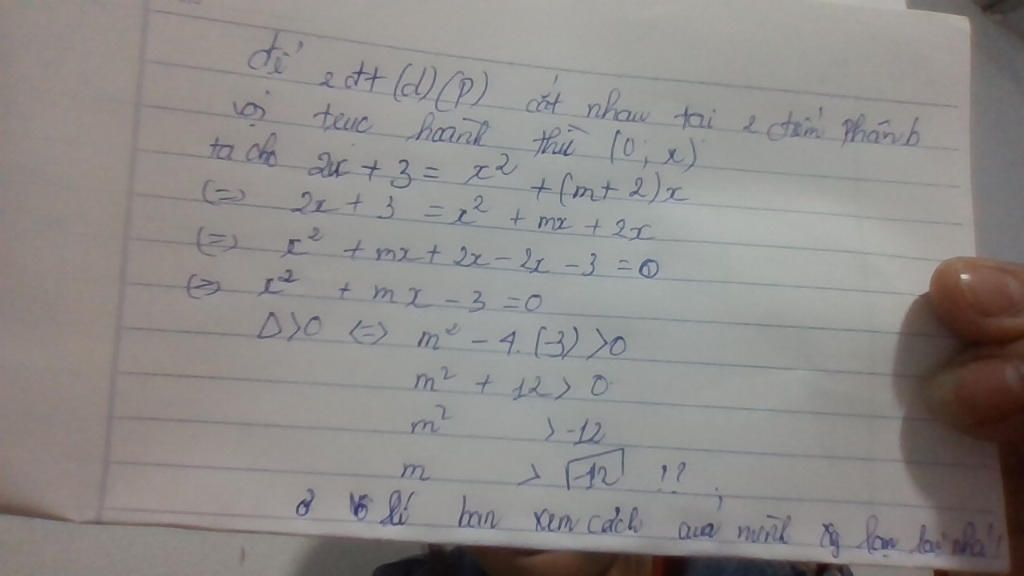 để 2 đt (d) (P) cắt nhau tại 2 điểm phân b
với trục hoành thì (0; x)
ta cho 2x + 3 = x² + (m + 2)x
(=) 2x + 3 = x² + mx + 2x
(=) x² + mx + 2x - 2x - 3 = 0
(=) x² + mx - 3 = 0
Δ>0 (=) m² - 4.(-3) >0
m² + 12 > 0
m² > -12
m > √-12 !!
lí bạn xem cách của mình xg làm lại nhá!